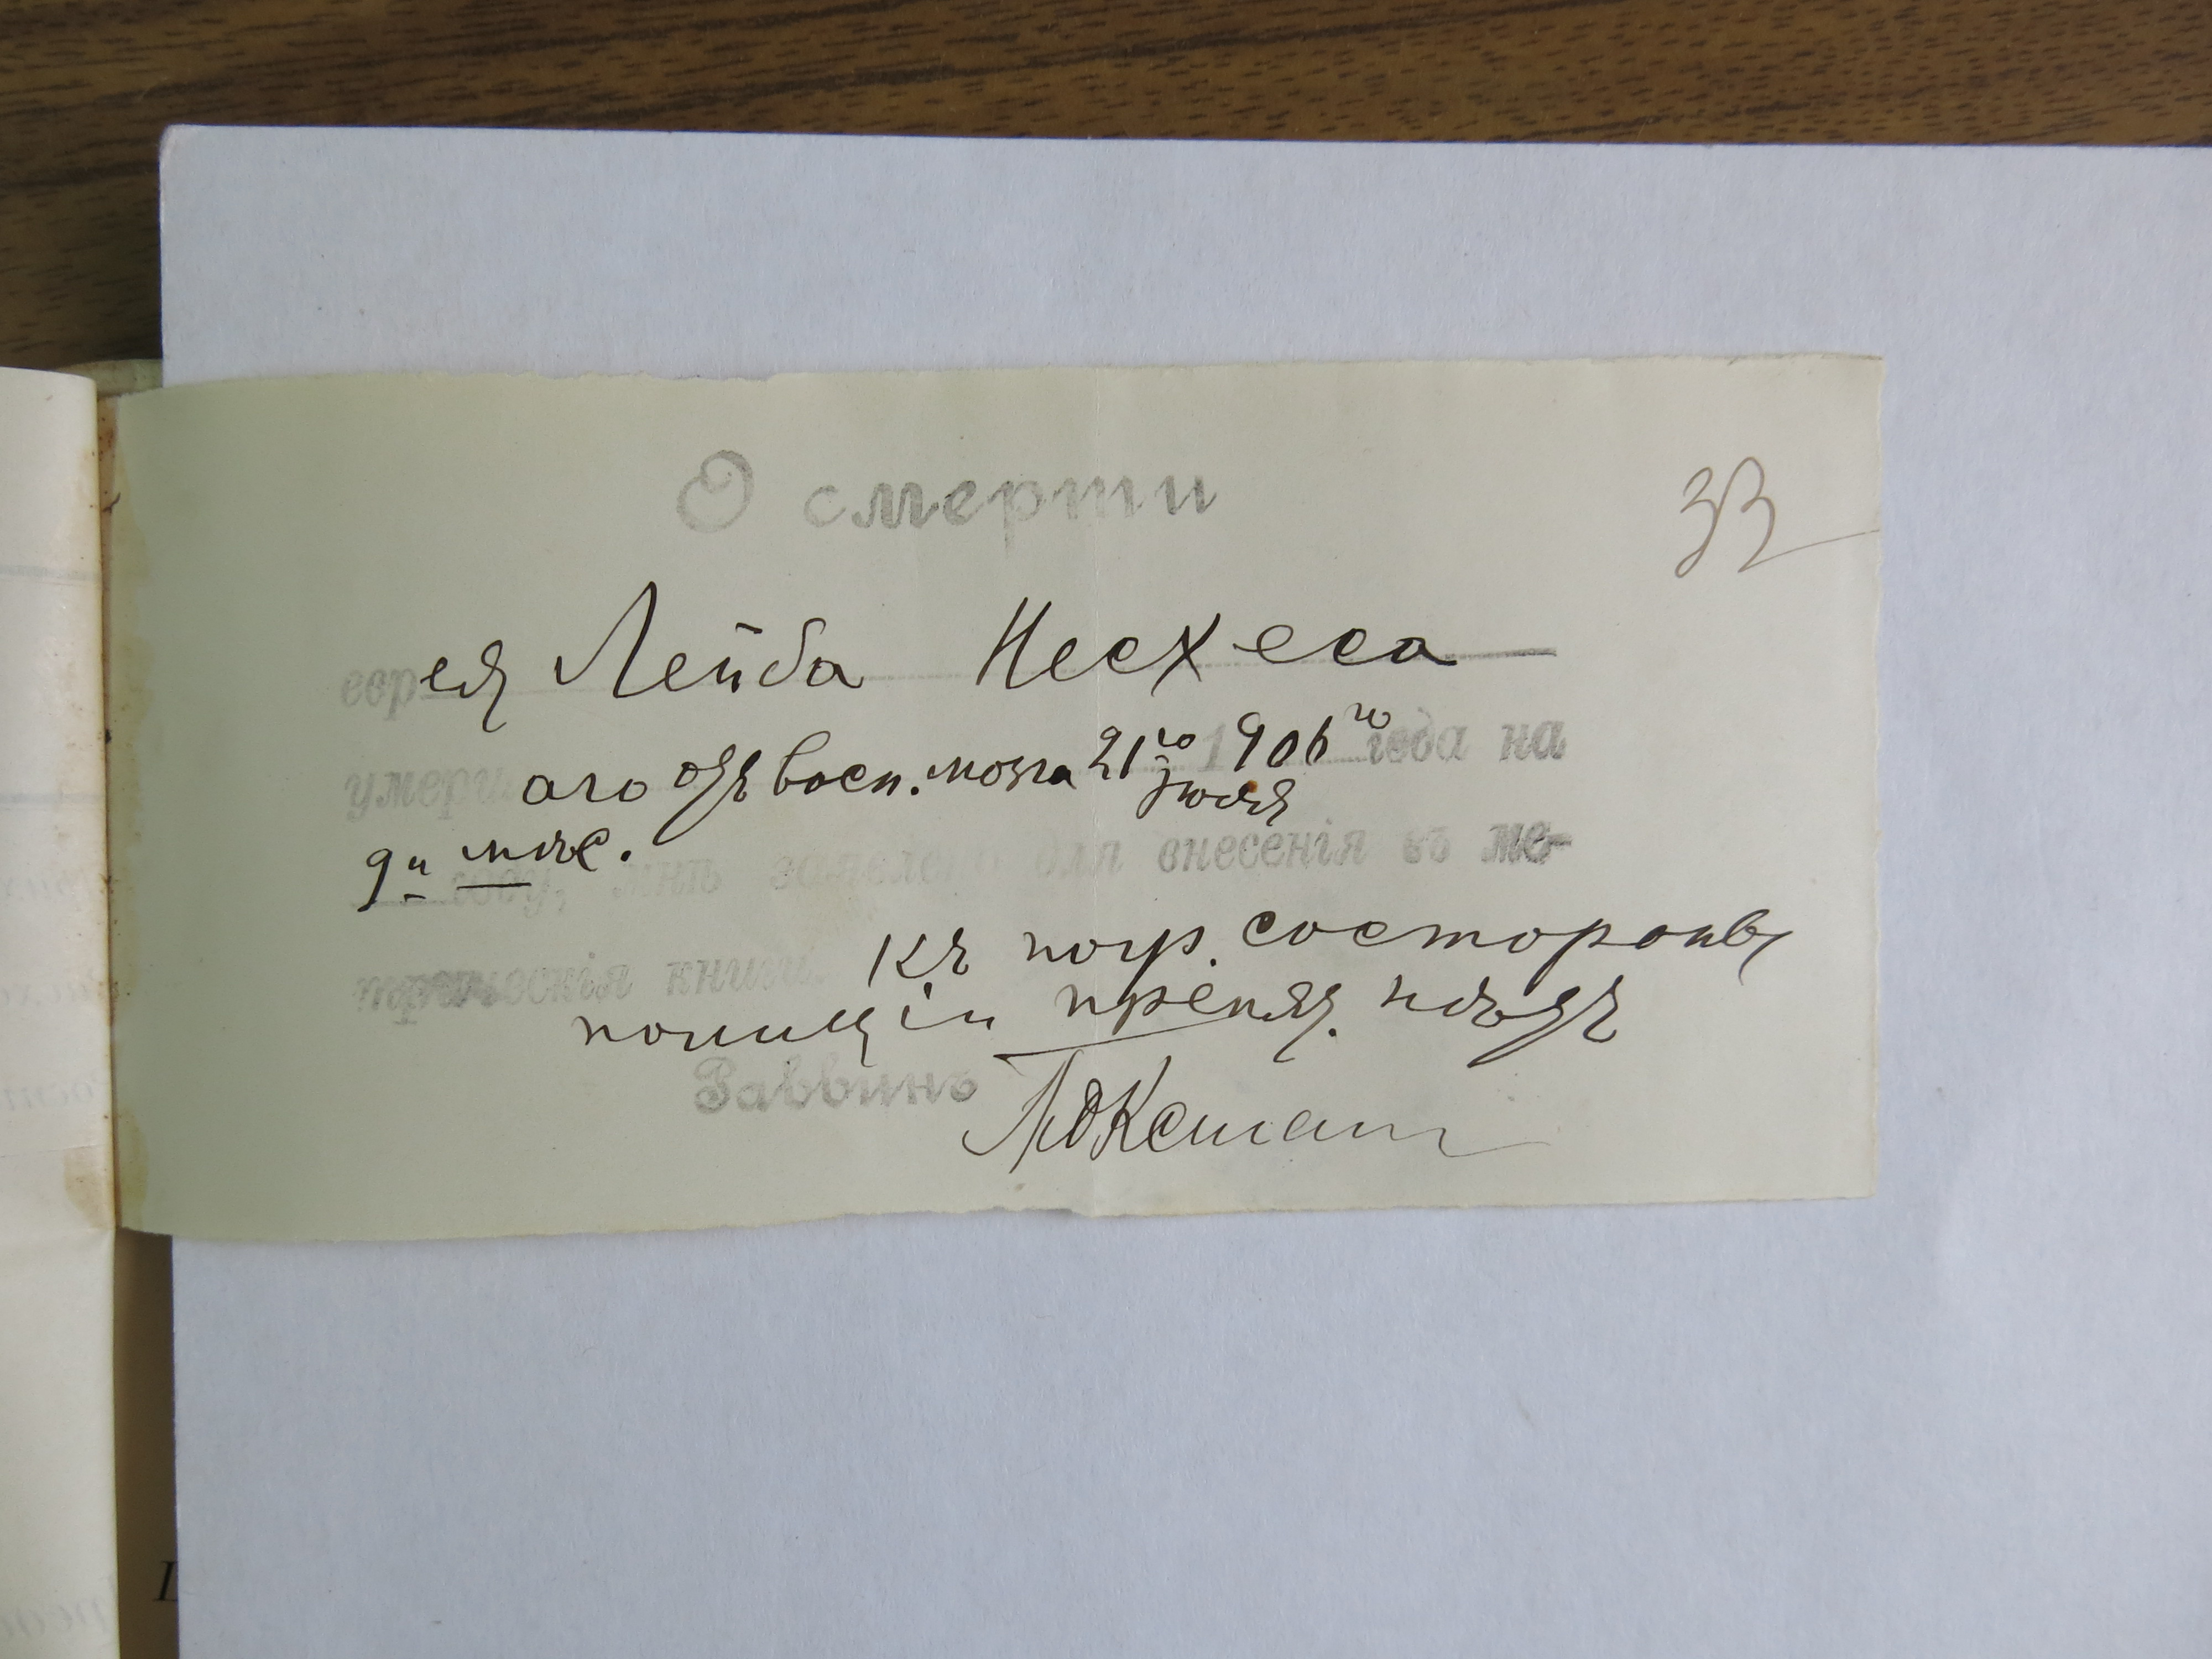 О смерти
33
еврея Лейба Несхеса
умершаго отъ восп. мозга 21го Іюля 1906го года на
9и мѣс. году, мнѣ заявлено для внесенія въ ме-
трическія книги. Къ погр. состороны
полиціи препят. нѣтъ
Раввинъ